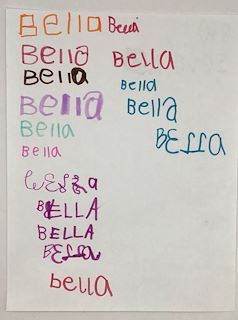 Bella Bella
Bella Bella
Bella
Bella
Bella Bella
Bella
Bella BELLA
BELLA
BELLA
BELLA
BELLA
bella